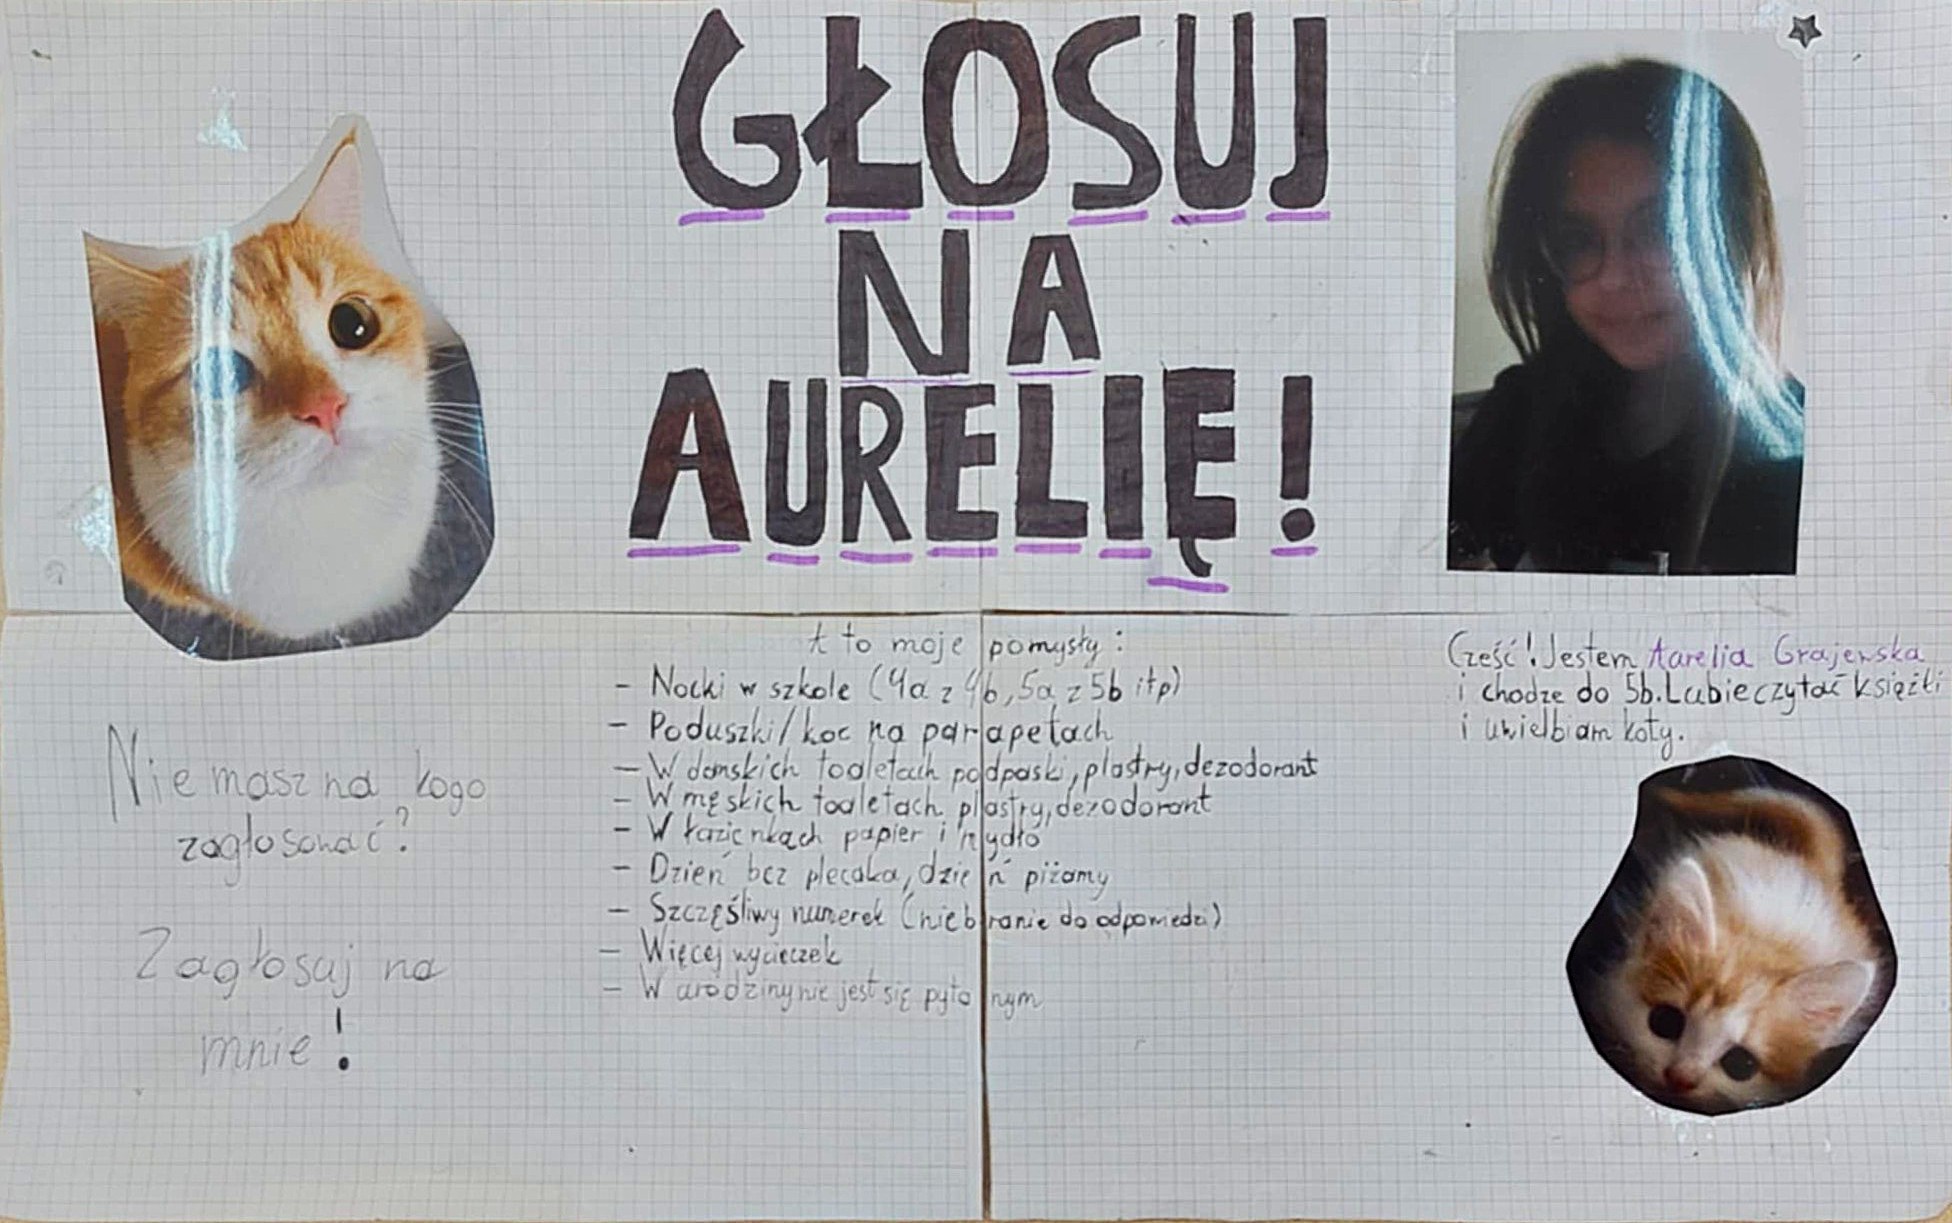 GŁOSUJ
NA
AURELIĘ!
Nie masz na kogo
zagłosować?
Zagłosuj na
mnie!
A to moje pomysły:
- Nocki w szkole (4a z 4b, 5a z 5b itp)
- Poduszki/koc na parapetach
- W damskich toaletach podpaski, plastry, dezodorant
- W męskich toaletach plastry, dezodorant
- W łazienkach papier i mydło
- Dzień bez plecaka, dzień piżamy
- Szczęśliwy numerek (nie branie do odpowiedzi)
- Więcej wycieczek
- W urodziny nie jest się pytanym
Cześć! Jestem Aurelia Grajewska
i chodzę do 5b. Lubię czytać książki
i uwielbiam koty.